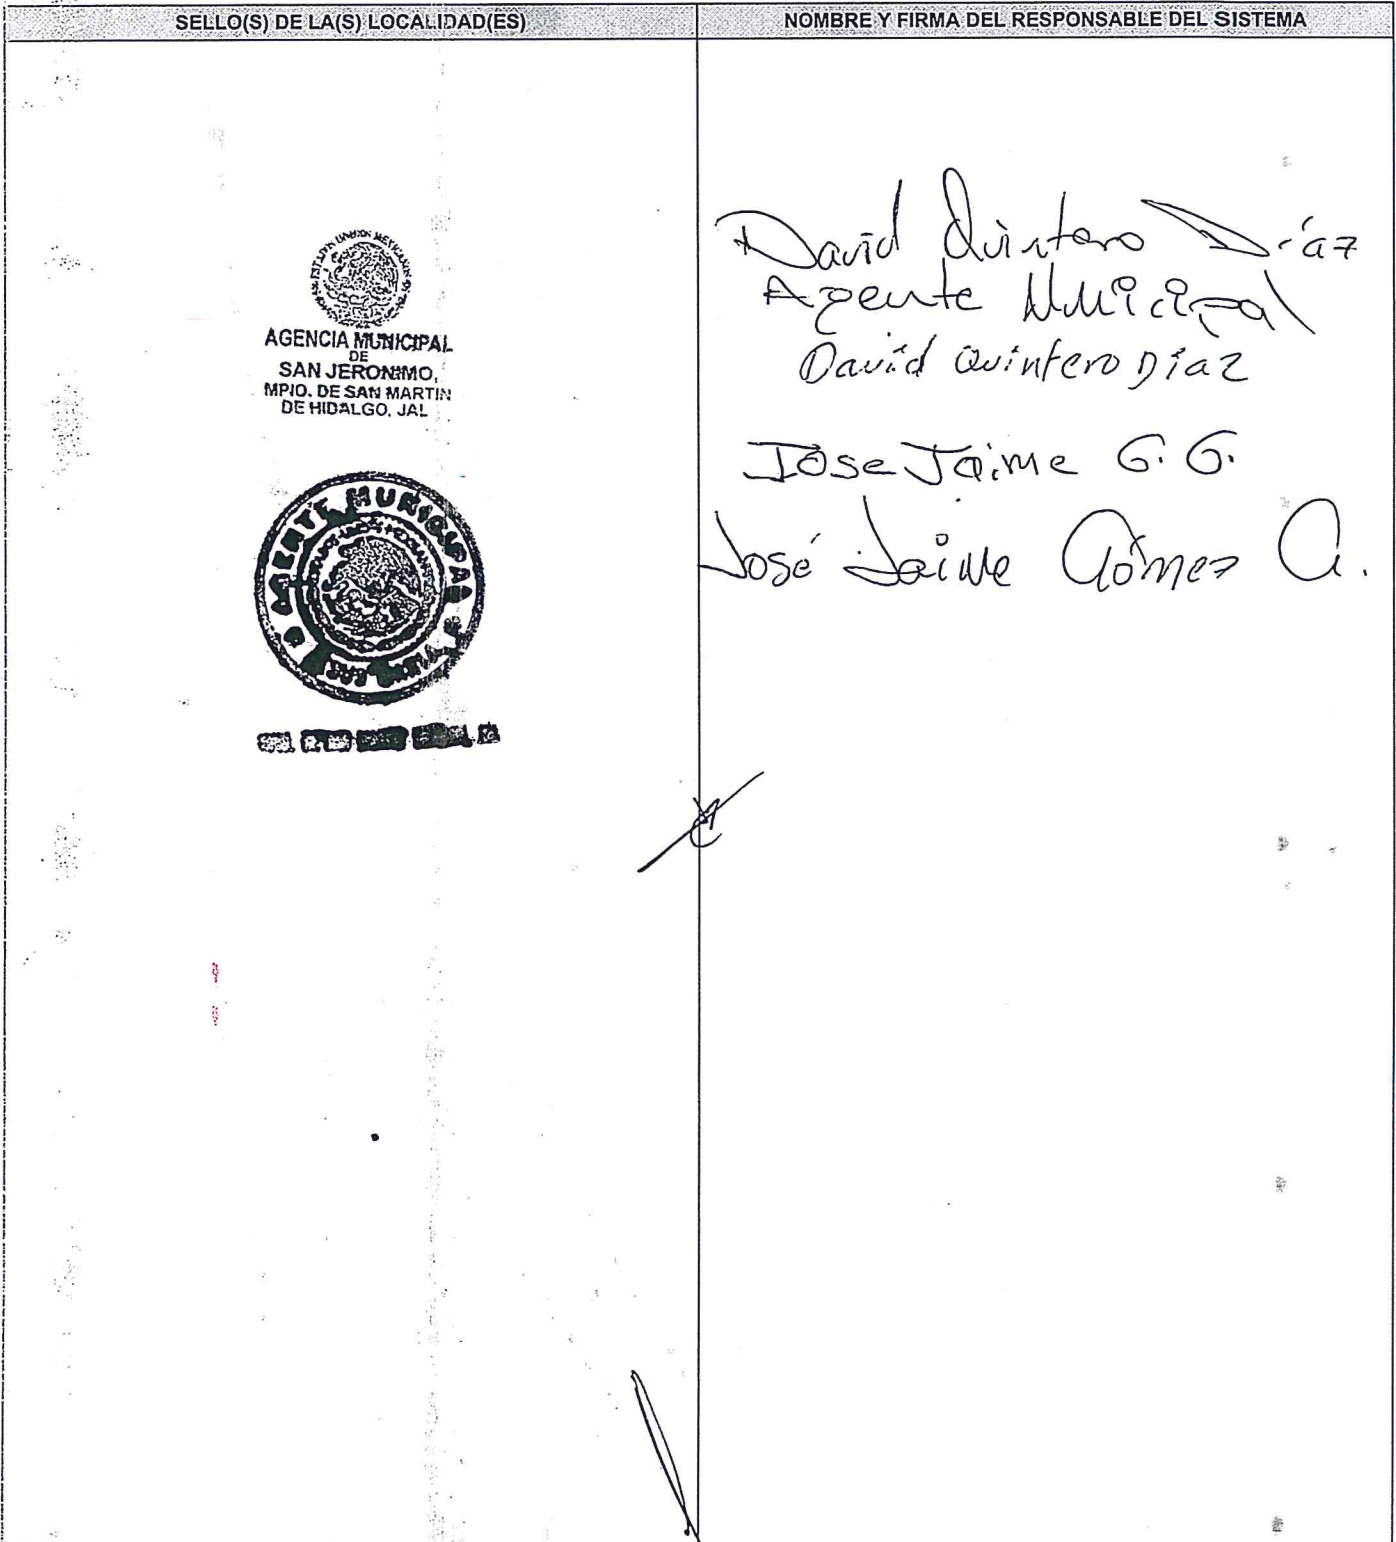 SELLO(S) DE LA(S) LOCALIDAD(ES)
NOMBRE Y FIRMA DEL RESPONSABLE DEL SISTEMA
AGENCIA MUNICIPAL
DE
SAN JERONIMO,
MPIO. DE SAN MARTIN
DE HIDALGO, JAL
David Quintero Díaz
Agente Municipal
David Quintero Díaz
Jose Jaime G. G.
José Jaime Gómez G.